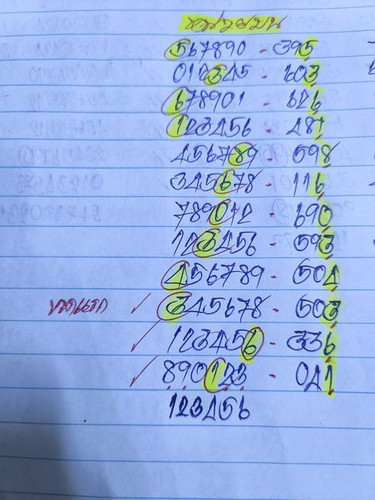 หน่วยบน
567890 - 395
012345 - 603
678901 - 626
123456 - 281
456789 - 598
345678 - 116
789012 - 690
123456 - 593
456789 - 504
345678 - 503
123456 - 336
890123 - 041
123456